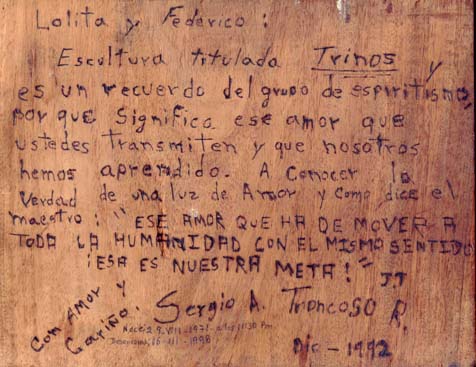 Lolita y Federico:
Escultura titulada Trinos y
es un recuerdo del grupo de espiritismo
porque significa ese amor que
ustedes transmiten y que nosotros
hemos aprendido. A Conocer la
verdad de una luz de Amor y como dice el
maestro: "ESE AMOR QUE HA DE MOVER A
TODA LA HUMANIDAD CON EL MISMO SENTIDO
¡ESA ES NUESTRA META!"
JJ
CON AMOR Y
Cariño: Sergio A. Troncoso R.
Nace: 29-VIII-1971- 11:30 Pm
16-III-1998
Dic-1992